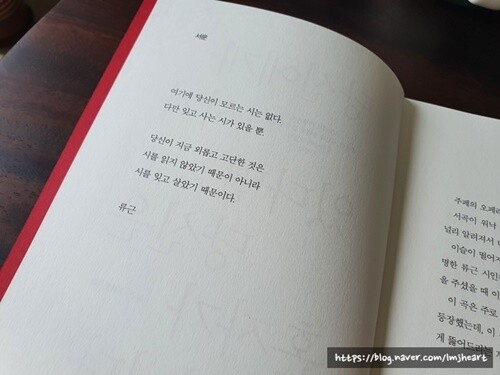 서문
여기에 당신이 모르는 시는 없다.
다만 잊고 사는 시가 있을 뿐.
당신이 지금 외롭고 고단한 것은
시를 읽지 않았기 때문이 아니라
시를 잊고 살았기 때문이다.
류근
주페의 오페라
서곡이 워낙
널리 알려져서
이슬이 떨어져
명한 류근 시인
을 주셨을 때 이
이 곡은 주로
등장했는데, 이
게 뚫어드리는
https://blog.naver.com/lmjheart